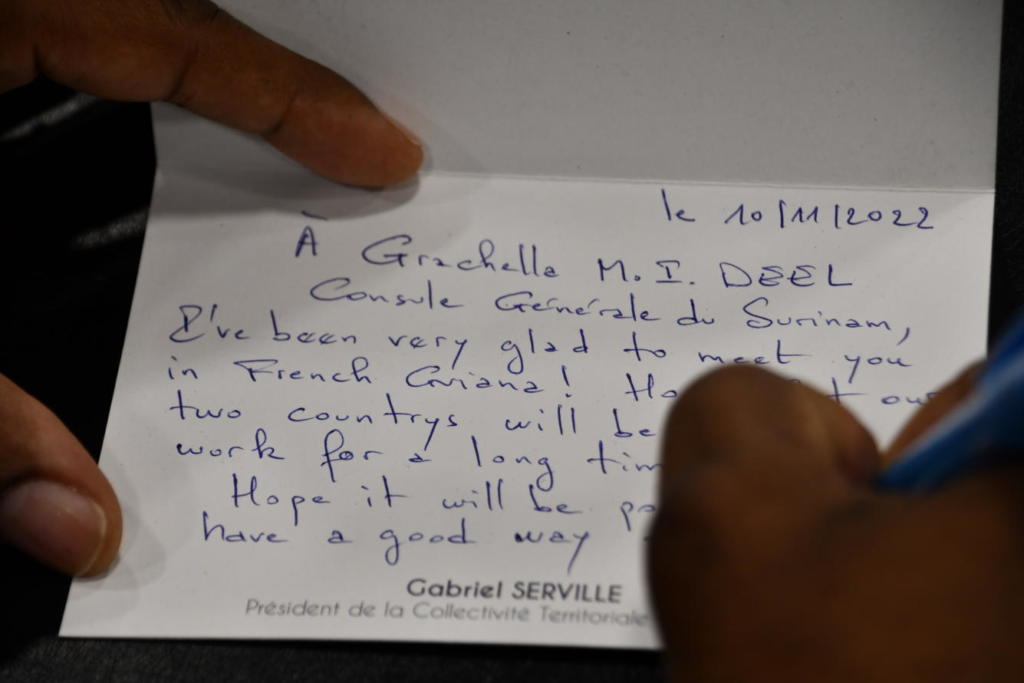 le 10/11/2022
À Grachella M. I. DEEL
Consule Générale du Surinam,
I've been very glad to meet you
in French Guiana!
two countrys will be
work for a long
Hope it will be
have a good way
Gabriel SERVILLE
Président de la Collectivité Territoriale